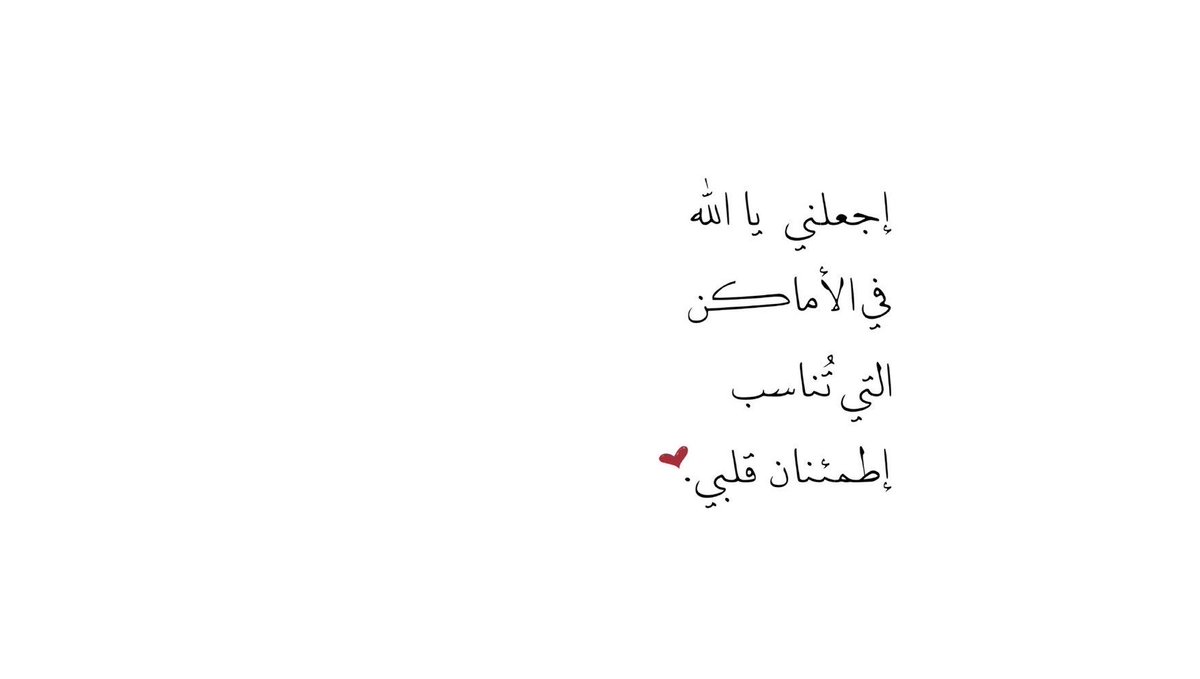 إجعلني يا الله
في الأماكن
التي تُناسب
إطمئنان قلبي.